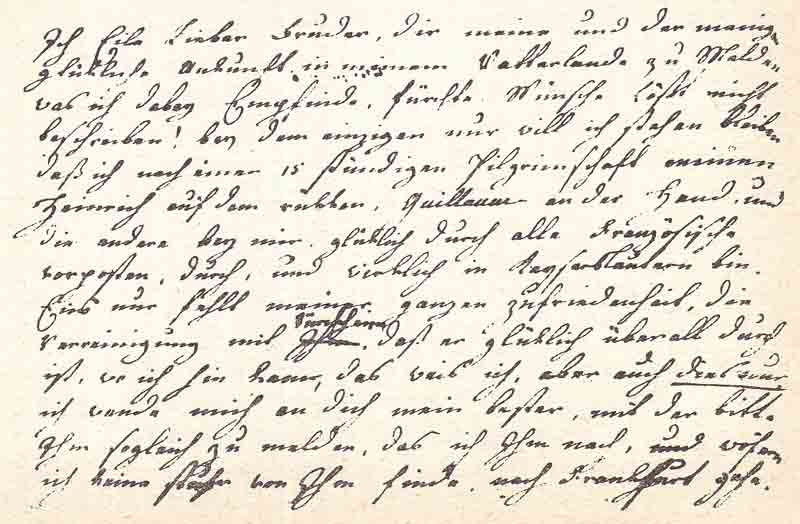 Ich Eile Lieber Bruder, dir meine und der meinige
glükliche Ankunft in meinem Vatterlande zu Melden
was ich dabey Empfinde, fürchte Wünsche läßt nicht
beschreiben! bey dem einzigen nur will ich stehen bleiben
daß ich nach einer 15 stündigen Pilgrimschaft meinen
Heinrich auf dem rükken, Guillaume an der Hand, und
die andere bey mir. glüklich durch alle Französische
vorposten, durch, und wirklich in Kayserslautern bin.
Eins nur fehlt meiner ganzen zufriedenheit, die
vereinigung mit daß er glüklich überall durch
ist, wo ich hin kame, das weis ich, aber auch dies nur
ich wende mich an dich mein bester, mit der bitte
Ihm sogleich zu melden, das ich Ihm nach, und wofern
ich keine von Ihm finde, nach Frankfurt gehe.